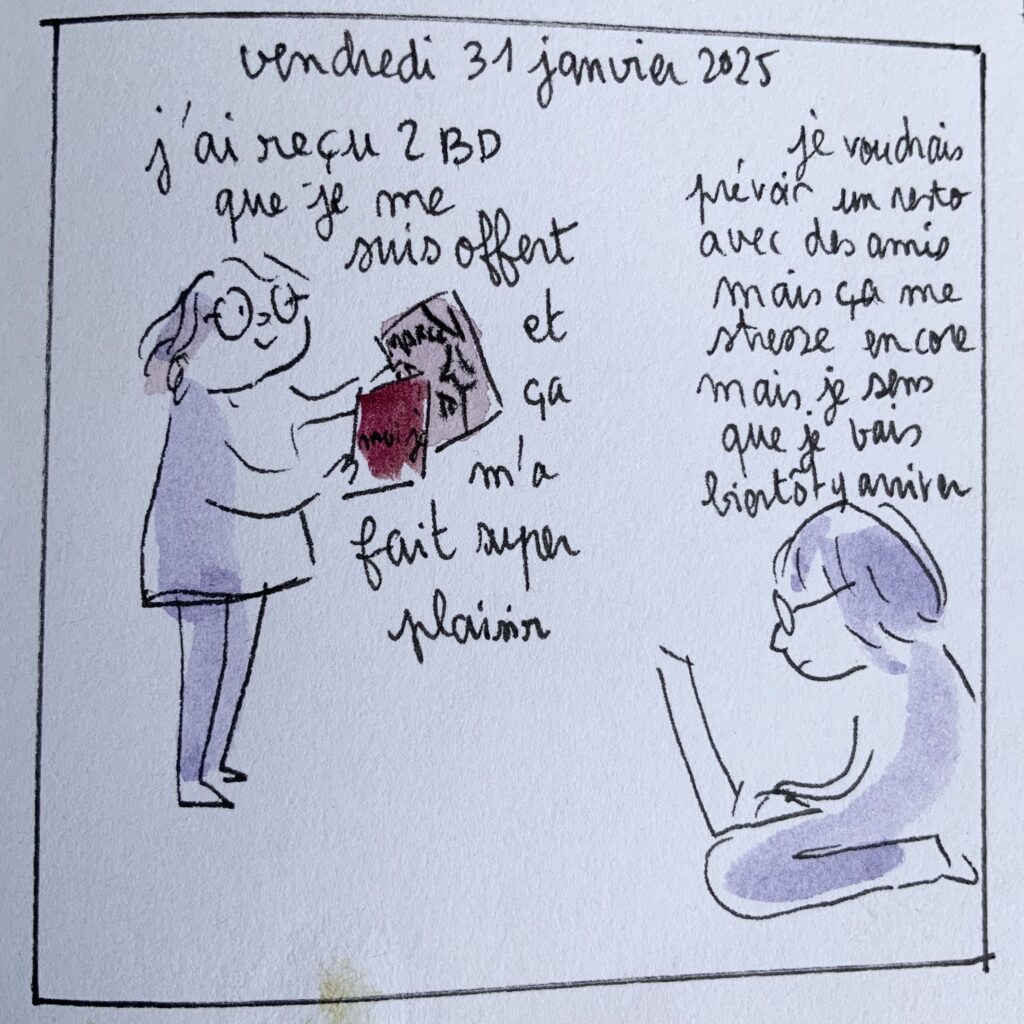 vendredi 31 janvier 2025
j'ai reçu 2 BD
que je me
suis offert
et
ça
m'a
fait super
plaisir
je voudrais
prévoir un resto
avec des amis
mais ça me
stresse encore
mais je sens
que je vais
bientôt y arriver